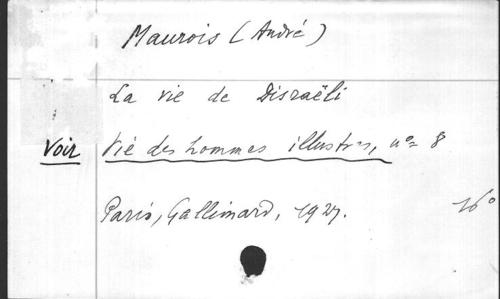 Maurois (André)
La vie de Disraëli
Voir Vie des hommes illustres, nº 8
Paris, Gallimard, 1927.
16º